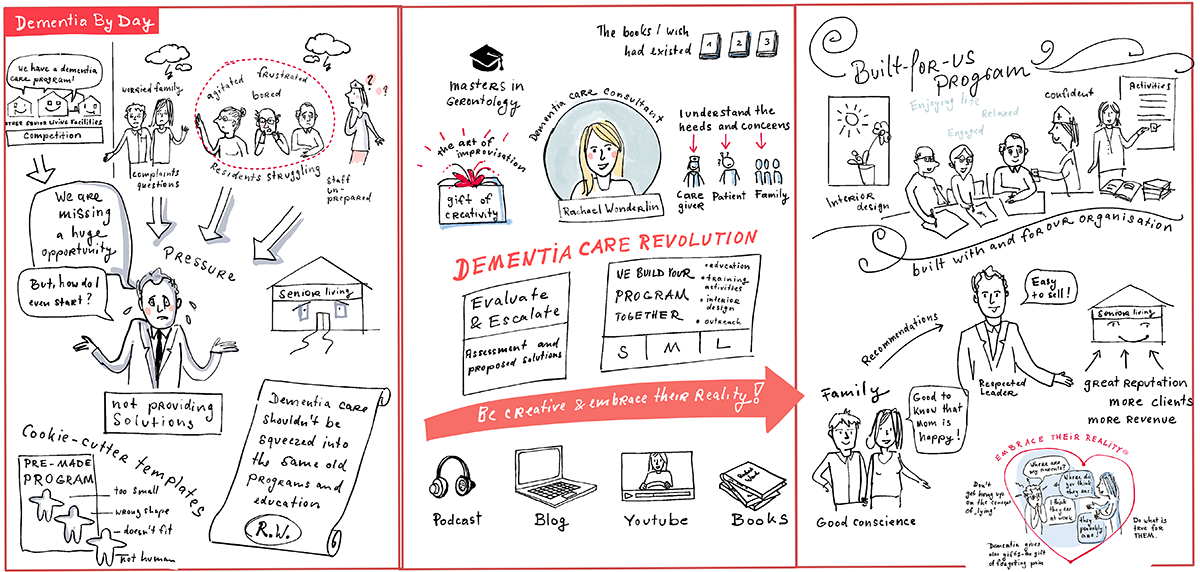 Dementia By Day
We have a dementia
care program!
OTHER SENIOR LIVING FACILITIES
Competition
worried family
complaints
questions
agitated
frustrated
bored
Residents struggling
? ?
Staff
un-
prepared
We are
missing
a huge
opportunity
But, how do I
even start?
PRESSURE
Senior living
not providing
Solutions
Cookie-cutter templates
PRE-MADE
PROGRAM
too small
wrong shape
doesn't fit
not human
Dementia care
shouldn't be
squeezed into
the same old
programs and
education
R.W.
masters in
Gerontology
The books I wish
had existed
1 2 3
the art of
improvisation
gift of
creativity
Dementia care consultant
Rachael Wonderlin
I understand the
needs and concerns
Care
giver
Patient
Family
DEMENTIA CARE REVOLUTION
Evaluate
& Escalate
Assessment and
proposed solutions
WE BUILD YOUR
PROGRAM
TOGETHER
• education
• training
activities
• interior
design
• outreach
S M L
Be creative & embrace their Reality!
Podcast
Blog
Youtube
Books
Built-for-us
Program
Interior
design
Enjoying life
Relaxed
Engaged
confident
Activities
built with and for our organisation
Recommendations
Easy
to sell!
Respected
Leader
Senior living
great Reputation
more clients
more Revenue
Family
Good to
know that
Mom is
happy!
Good conscience
EMBRACE THEIR REALITY®
Where are
my parents?
Where do
you think
they are?
I think
they are
at work
they
probably
are!
Don't
get hung up
on the concept
of „lying"
Do what is
true for
THEM.
"Dementia gives
also gifts-the gift
of forgetting pain